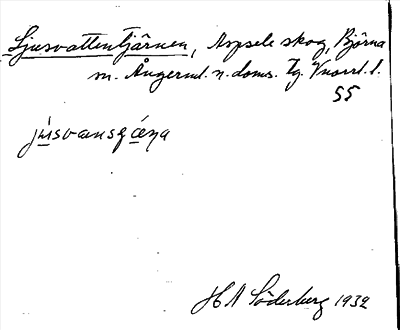 Ljusvattentjärnen, Aspsele skog, Björna
sn. Ångerml. n. doms. tg. Vnorrl. l.
55
H A Söderberg 1932